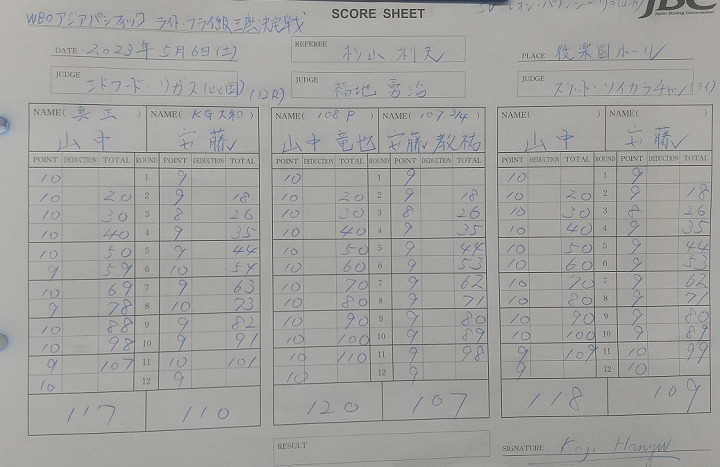 SCORE SHEET
JBC
Japan Boxing Commission
WBOアジアパシフィック ライト・フライ級王座決定戦
DATE 2023年5月6日(土)
REFEREE 杉山利夫
PLACE 後楽園ホール
JUDGE エドワード・リガス(比国) (12R)
JUDGE 福地勇治
JUDGE (タイ)
NAME( 真正 ) NAME( KG大和 ) NAME( 108P ) NAME( 107 3/4 ) NAME( ) NAME( )
山中 安藤 山中竜也 安藤教祐 山中 安藤
POINT DEDUCTION TOTAL ROUND POINT DEDUCTION TOTAL POINT DEDUCTION TOTAL ROUND POINT DEDUCTION TOTAL POINT DEDUCTION TOTAL ROUND POINT DEDUCTION TOTAL
10 1 9 10 1 9 10 1 9
10 20 2 9 18 10 20 2 9 18 10 20 2 9 18
10 30 3 8 26 10 30 3 8 26 10 30 3 8 26
10 40 4 9 35 10 40 4 9 35 10 40 4 9 35
10 50 5 9 44 10 50 5 9 44 10 50 5 9 44
9 59 6 10 54 10 60 6 9 53 10 60 6 9 53
10 69 7 9 63 10 70 7 9 62 10 70 7 9 62
9 78 8 10 73 10 80 8 9 71 10 80 8 9 71
10 88 9 9 82 10 90 9 9 80 10 90 9 9 80
10 98 10 9 91 10 100 10 9 89 10 100 10 9 89
9 107 11 10 101 10 110 11 9 98 9 109 11 10 99
10 12 9 10 12 9 9 12 10
117 110 120 107 118 109
RESULT
SIGNATURE